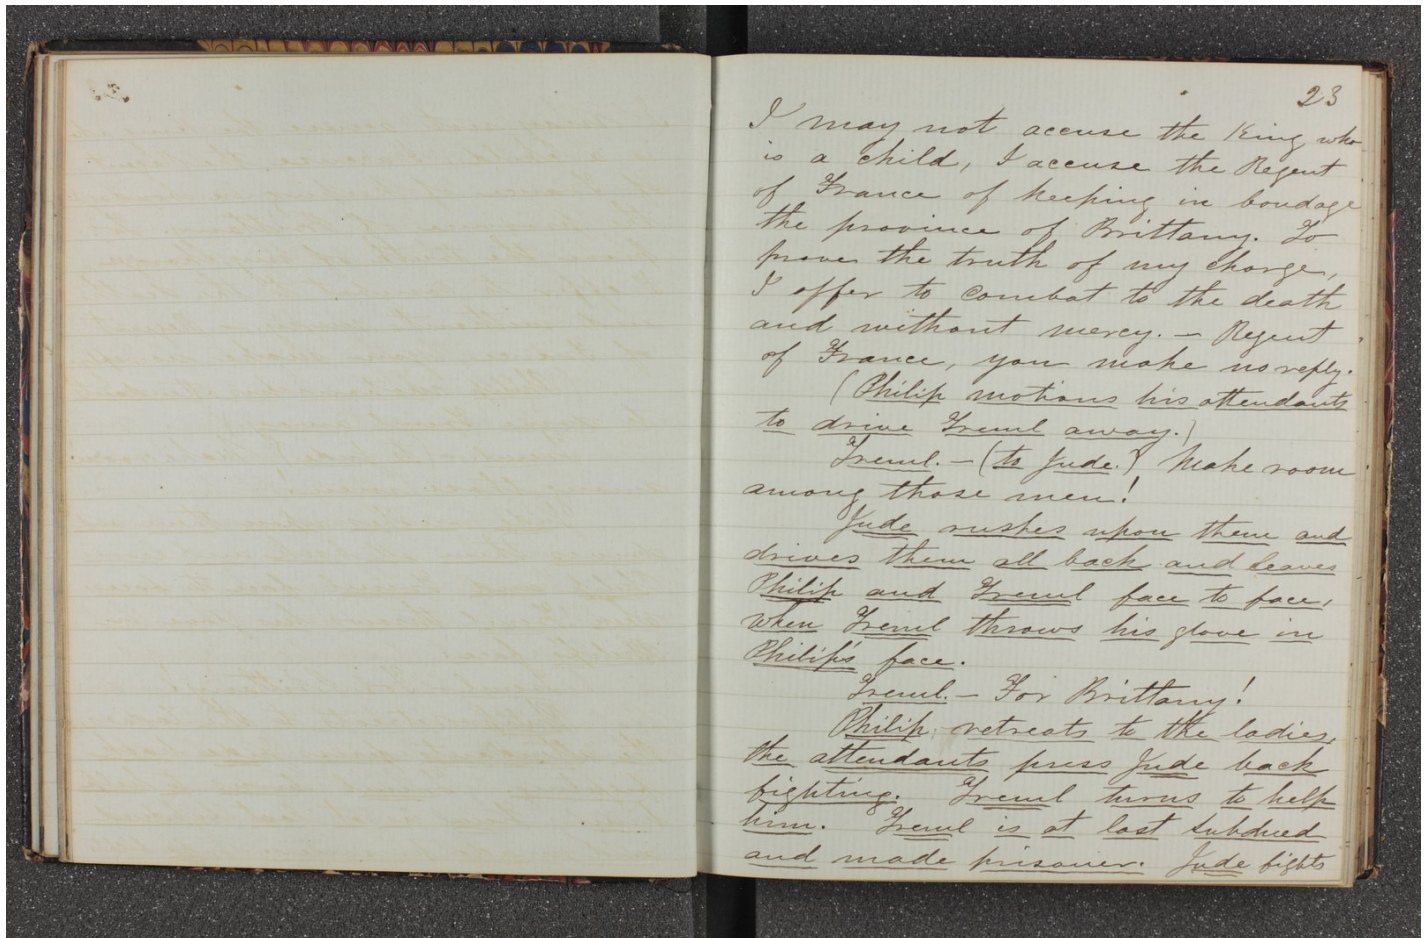 23
I may not accuse the King who
is a child, I accuse the Regent
of France of keeping in bondage
the province of Brittany. To
prove the truth of my charge,
I offer to combat to the death
and without mercy. — Regent
of France, you make no reply.
(Philip motions his attendants
to drive Treml away.)
Treml. — (to Jude.) Make room
among those men!
Jude rushes upon them and
drives them all back and leaves
Philip and Treml face to face,
when Treml throws his glove in
Philip's face.
Treml. — For Brittany!
Philip retreats to the ladies,
the attendants press Jude back
fighting. Treml turns to help
him. Treml is at last subdued
and made prisoner. Jude fights